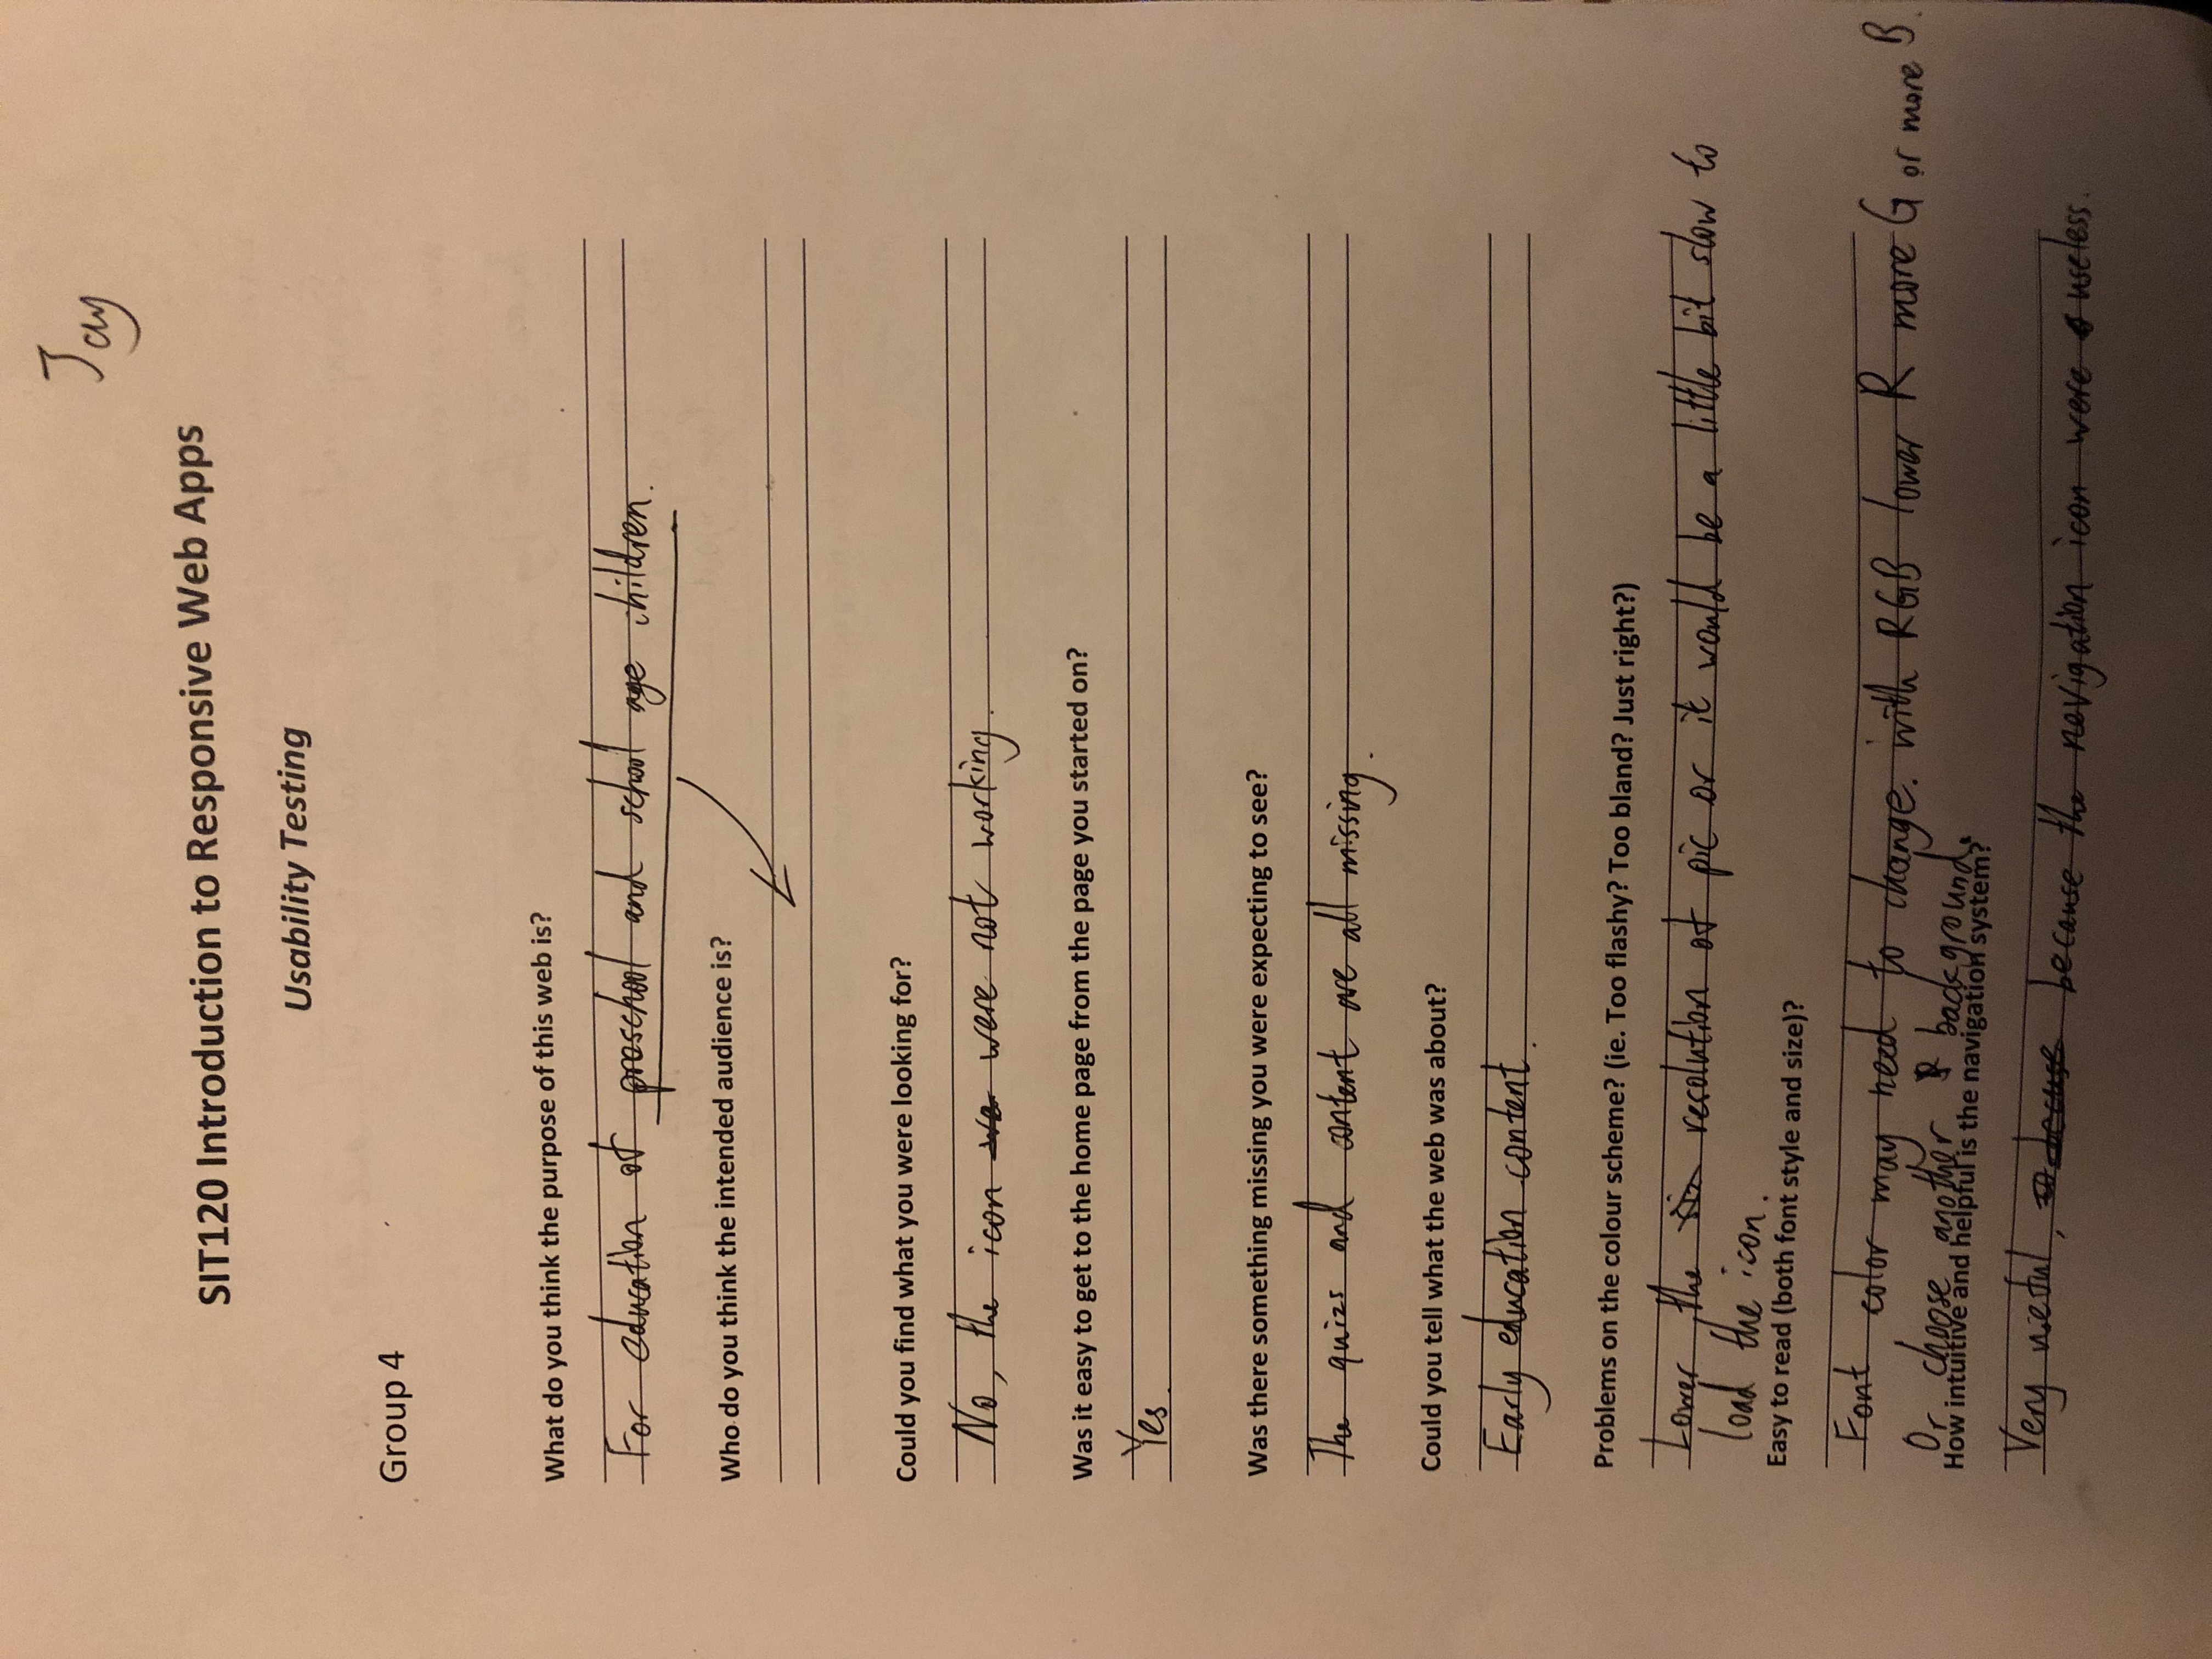 Jay
SIT120 Introduction to Responsive Web Apps
Usability Testing
Group 4
What do you think the purpose of this web is?
For education of preschool and school age children.
Who do you think the intended audience is?
Could you find what you were looking for?
No, the icon were not working.
Was it easy to get to the home page from the page you started on?
Yes.
Was there something missing you were expecting to see?
The quizs and content are all missing.
Could you tell what the web was about?
Early education content.
Problems on the colour scheme? (ie. Too flashy? Too bland? Just right?)
Lower the resolution of pic or it would be a little bit slow to
load the icon.
Easy to read (both font style and size)?
Font color may need to change. with RGB lower R more G or more B.
Or choose another background.
How intuitive and helpful is the navigation system?
Very useful, because the nevigation icon were useless.